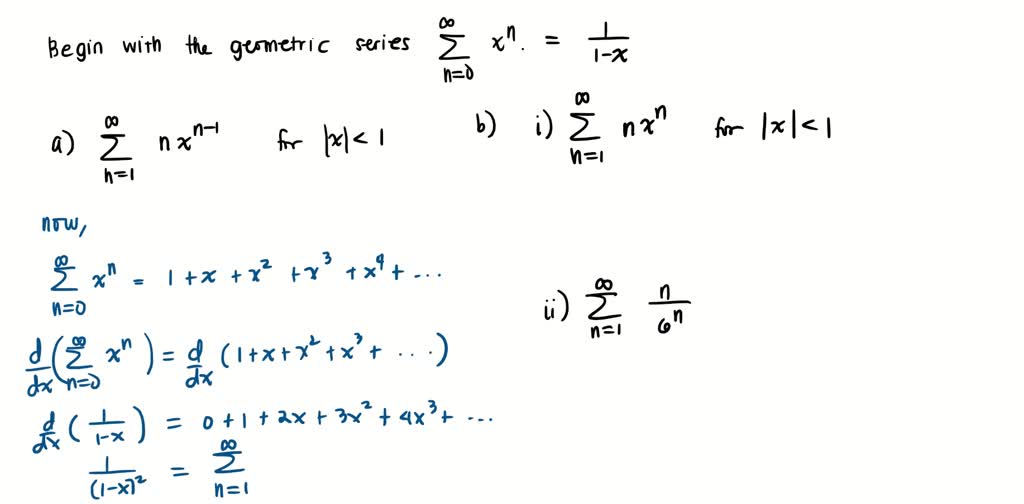 Begin with the geometric series ∑_{n=0}^{∞} x^n. = 1/(1-x)
a) ∑_{n=1}^{∞} n x^{n-1} for |x| < 1
b) i) ∑_{n=1}^{∞} n x^n for |x| < 1
now,
∑_{n=0}^{∞} x^n = 1 + x + x^2 + x^3 + x^4 + ...
ii) ∑_{n=1}^{∞} n/6^n
d/dx (∑_{n=0}^{∞} x^n) = d/dx (1 + x + x^2 + x^3 + ....)
d/dx (1/(1-x)) = 0 + 1 + 2x + 3x^2 + 4x^3 + ...
1/(1-x)^2 = ∑_{n=1}^{∞}